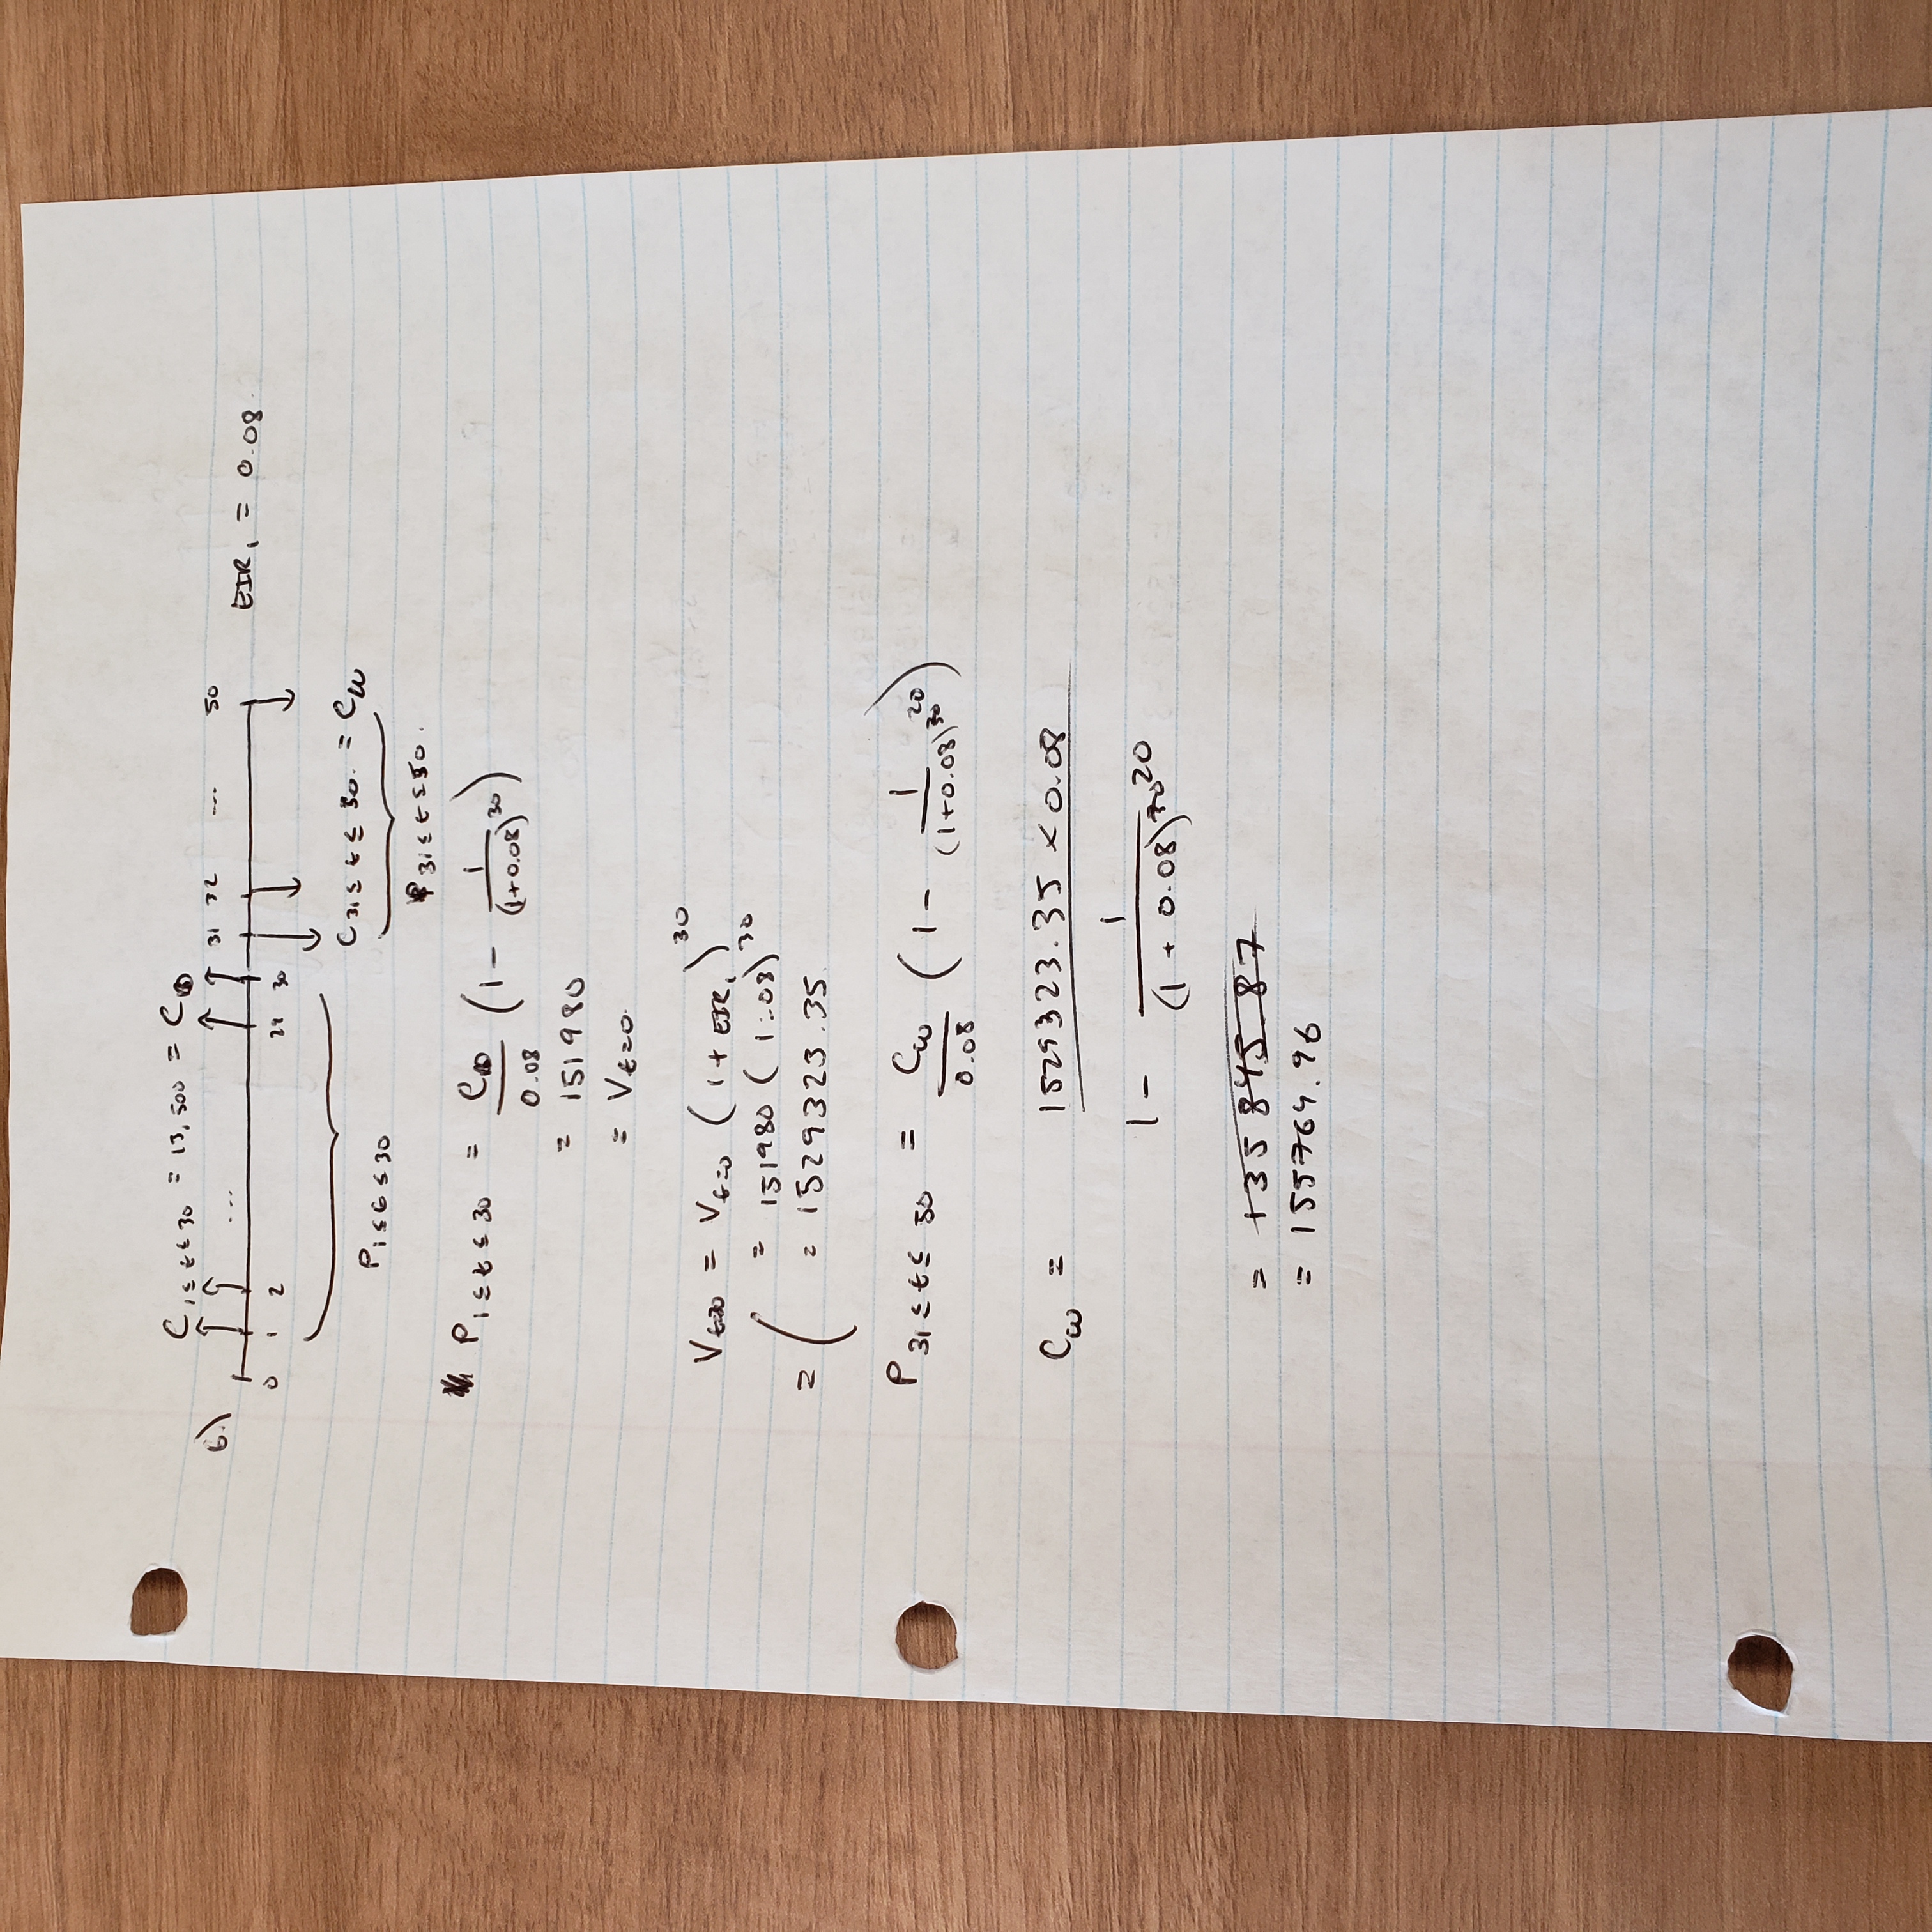 C 1≤t≤30 = 13,500 = C D
6.) 31 32 ... 50
... EIR₁ = 0.08
0 1 2 29 30
C 31≤t≤50. = C w
P 1≤t≤30
P 31≤t≤50.
P 1≤t≤30 = C D / 0.08 (1 - 1/(1+0.08)^30)
= 151980
= V t=0.
V t=30 = V t=0 (1 + EIR₁)^30
= 151980 (1.08)^30
= ( = 1529323.35
P 31≤t≤50 = C w / 0.08 (1 - 1/(1+0.08)^20)
C w = 1529323.35 × 0.08
1 - 1/(1 + 0.08)^20
= 135845.87
= 155764.96